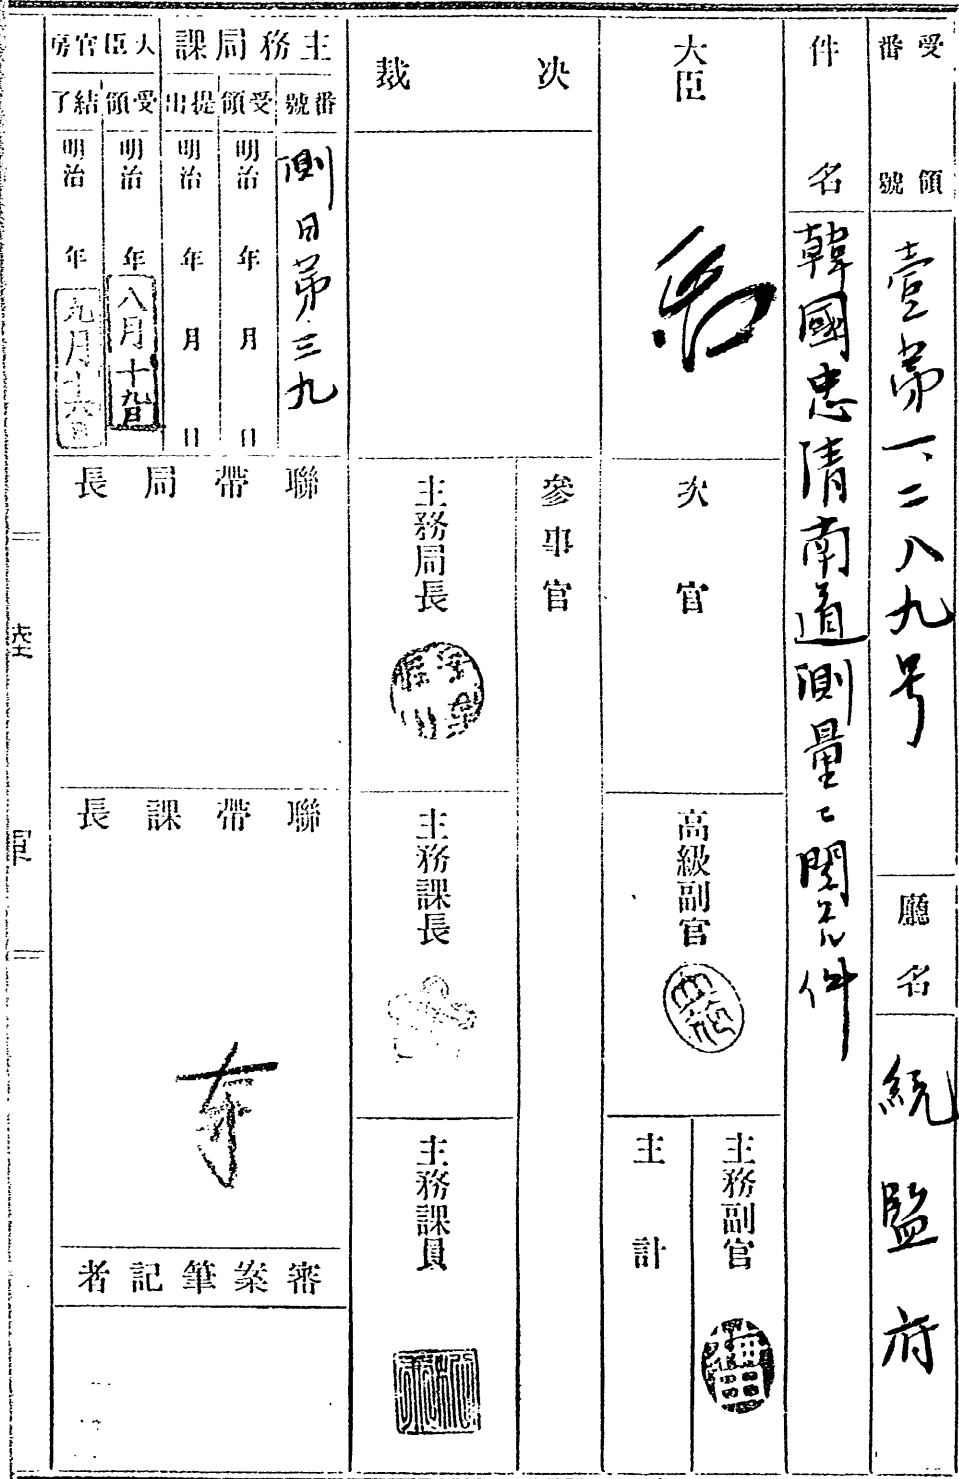 受領番號
壹第一、二八九号
廳名
統監府
件名
韓國忠清南道測量ニ関スル件
大臣
次官
高級副官
主務副官
主計
決裁
參事官
主務局長
主務課長
主務課員
主務局課
番號
測日第三九
受領
明治 年 月 日
提出
明治 年 月 日
大臣官房
受領
明治 年
八月十九日
結了
明治 年
九月十六日
聯帶局長
聯帶課長
審案筆記者
陸軍